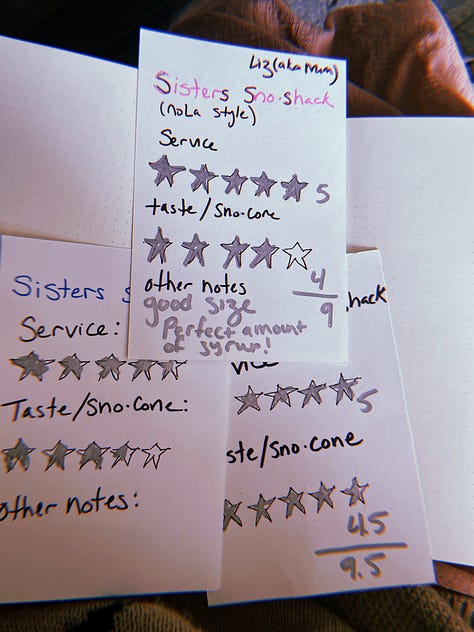 Liz (aka Mum)
Sisters Sno·shack
(NOLA style)
Service
5
taste/Sno-cone
4
9
other notes
good size
Perfect amount
of syrup!
Sisters
Service:
Taste/Sno-Cone:
other notes:
hack
vice
5
ste/Sno-Cone
4.5
9.5